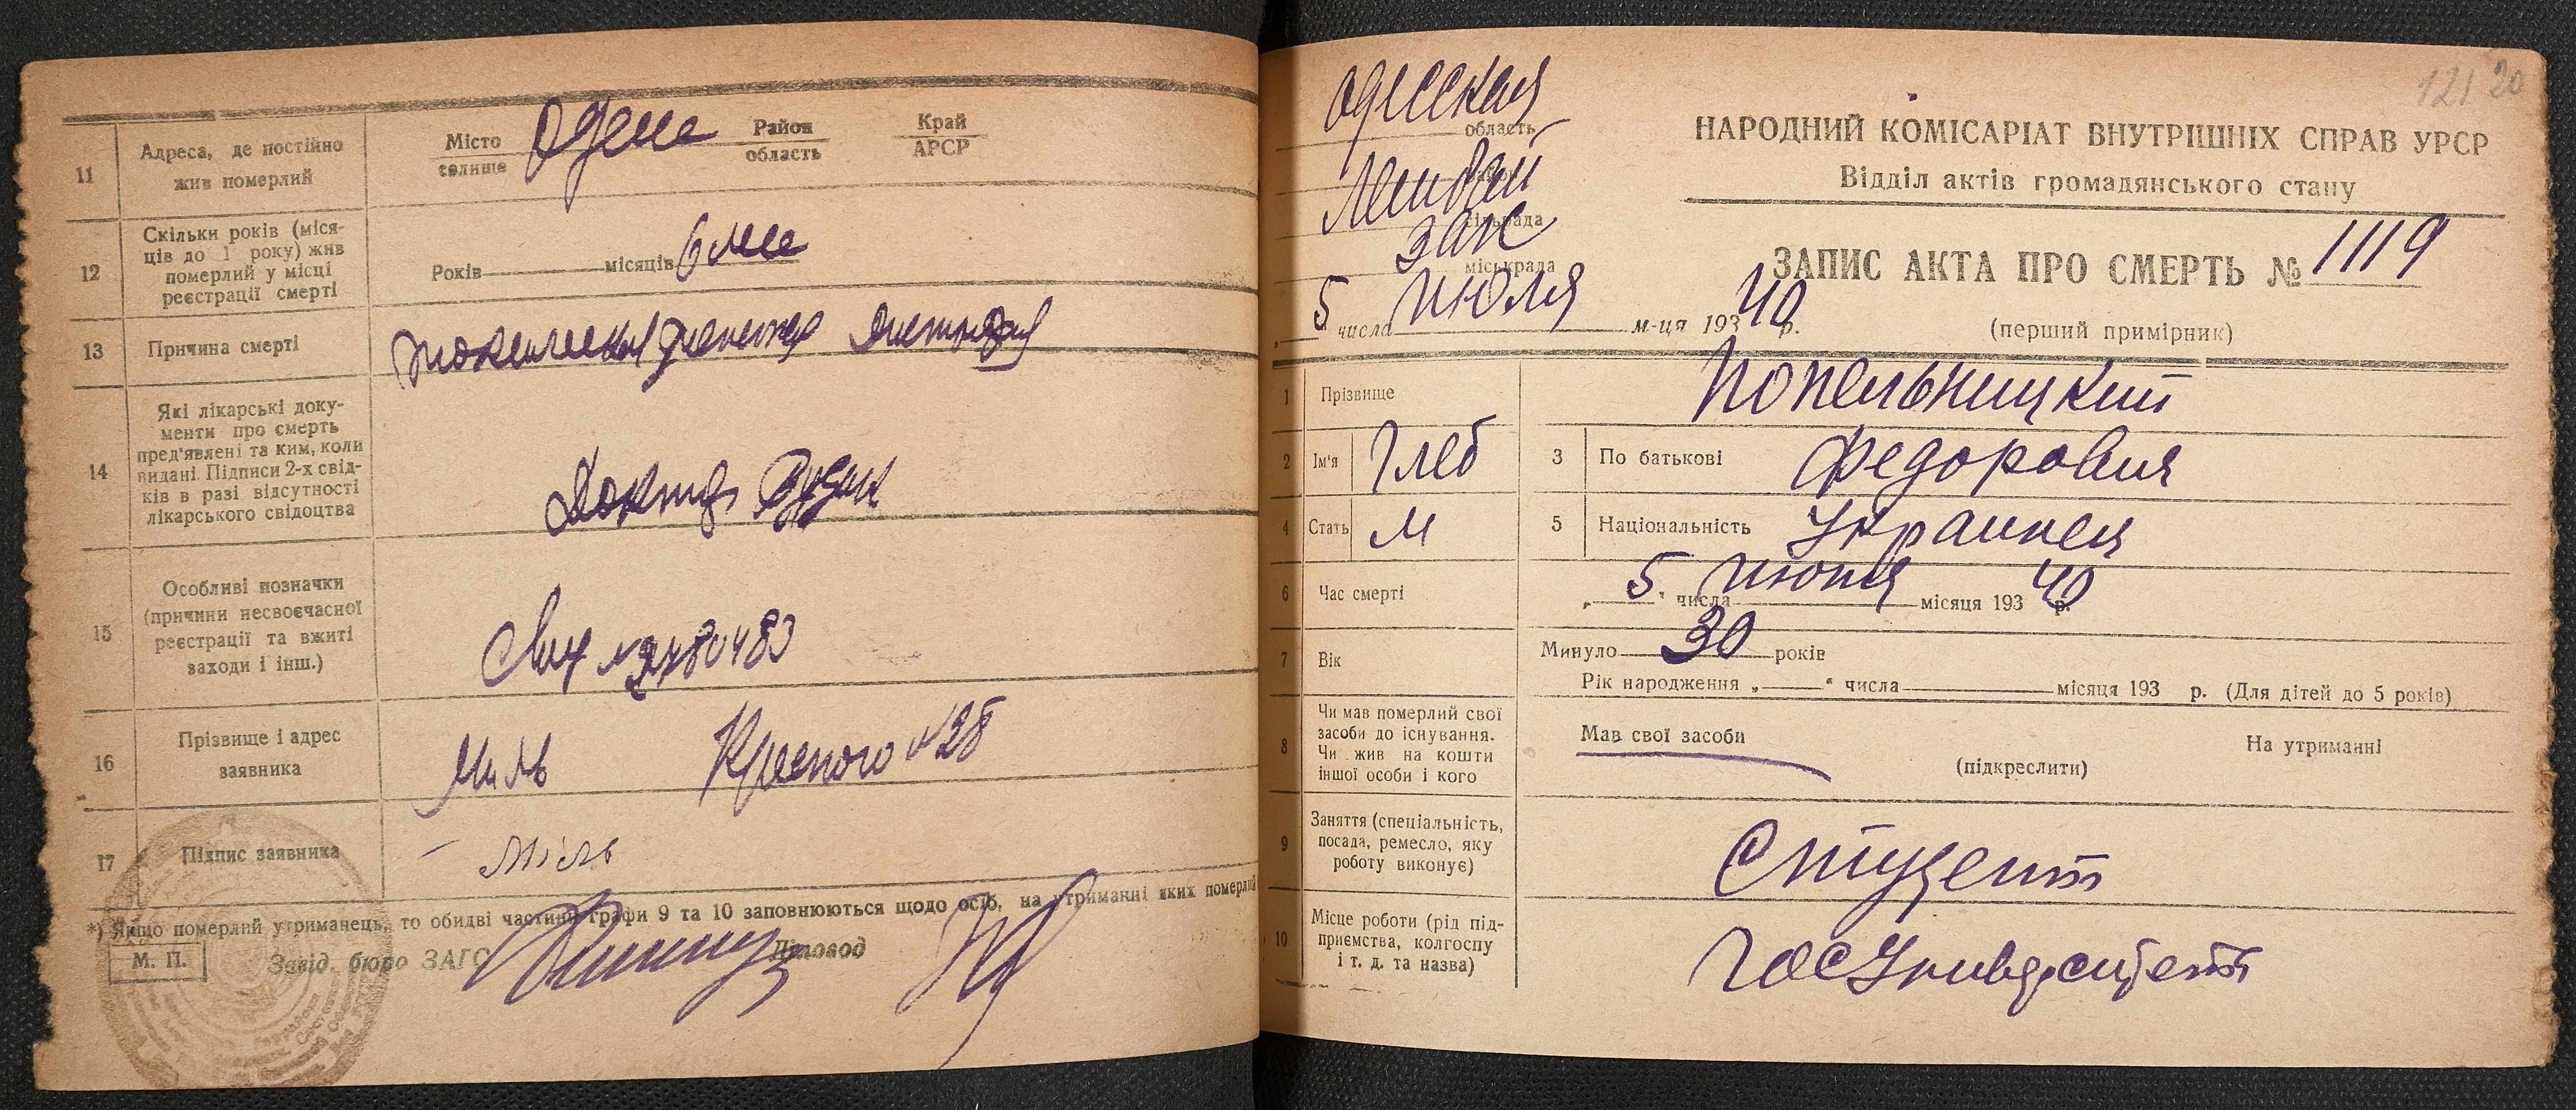 11
Адреса, де постійно
жив померлий
Місто
селище
Одесса
Район
область
Край
АРСР
12
Скільки років (міся-
ців до 1 року) жив
померлий у місці
реєстрації смерті
Років
місяців
6 мес
13
Причина смерті
токсическая
14
Які лікарські доку-
менти про смерть
пред'явлені та ким, коли
видані. Підписи 2-х свід-
ків в разі відсутності
лікарського свідоцтва
Доктор
15
Особливі позначки
(причини несвоєчасної
реєстрації та вжиті
заходи і інш.)
16
Прізвище і адрес
заявника
Миль
№ 28
17
Підпис заявника
Міль
*) Якщо померлий утриманець, то обидві частини графи 9 та 10 заповнюються щодо осіб, на утриманні яких померлий
М. П.
Завід. бюро ЗАГС
Діловод
121 20
Одесская
область
район
сільрада
міськрада
загс
5 числа июля м-ця 1940 р.
НАРОДНИЙ КОМІСАРІАТ ВНУТРІШНІХ СПРАВ УРСР
Відділ актів громадянського стану
ЗАПИС АКТА ПРО СМЕРТЬ № 1119
(перший примірник)
1
Прізвище
Попельницкий
2
Ім'я
Глеб
3
По батькові
Федорович
4
Стать
М
5
Національність
Украинец
6
Час смерті
„ 5 " числа июля місяця 193 40 р.
7
Вік
Минуло 30 років
Рік народження „ " числа місяця 193 р. (Для дітей до 5 років)
8
Чи мав померлий свої
засоби до існування.
Чи жив на кошти
іншої особи і кого
Мав свої засоби
(підкреслити)
На утриманні
9
Заняття (спеціальність,
посада, ремесло, яку
роботу виконує)
Студент
10
Місце роботи (рід під-
приємства, колгоспу
і т. д. та назва)
ГосУниверситет